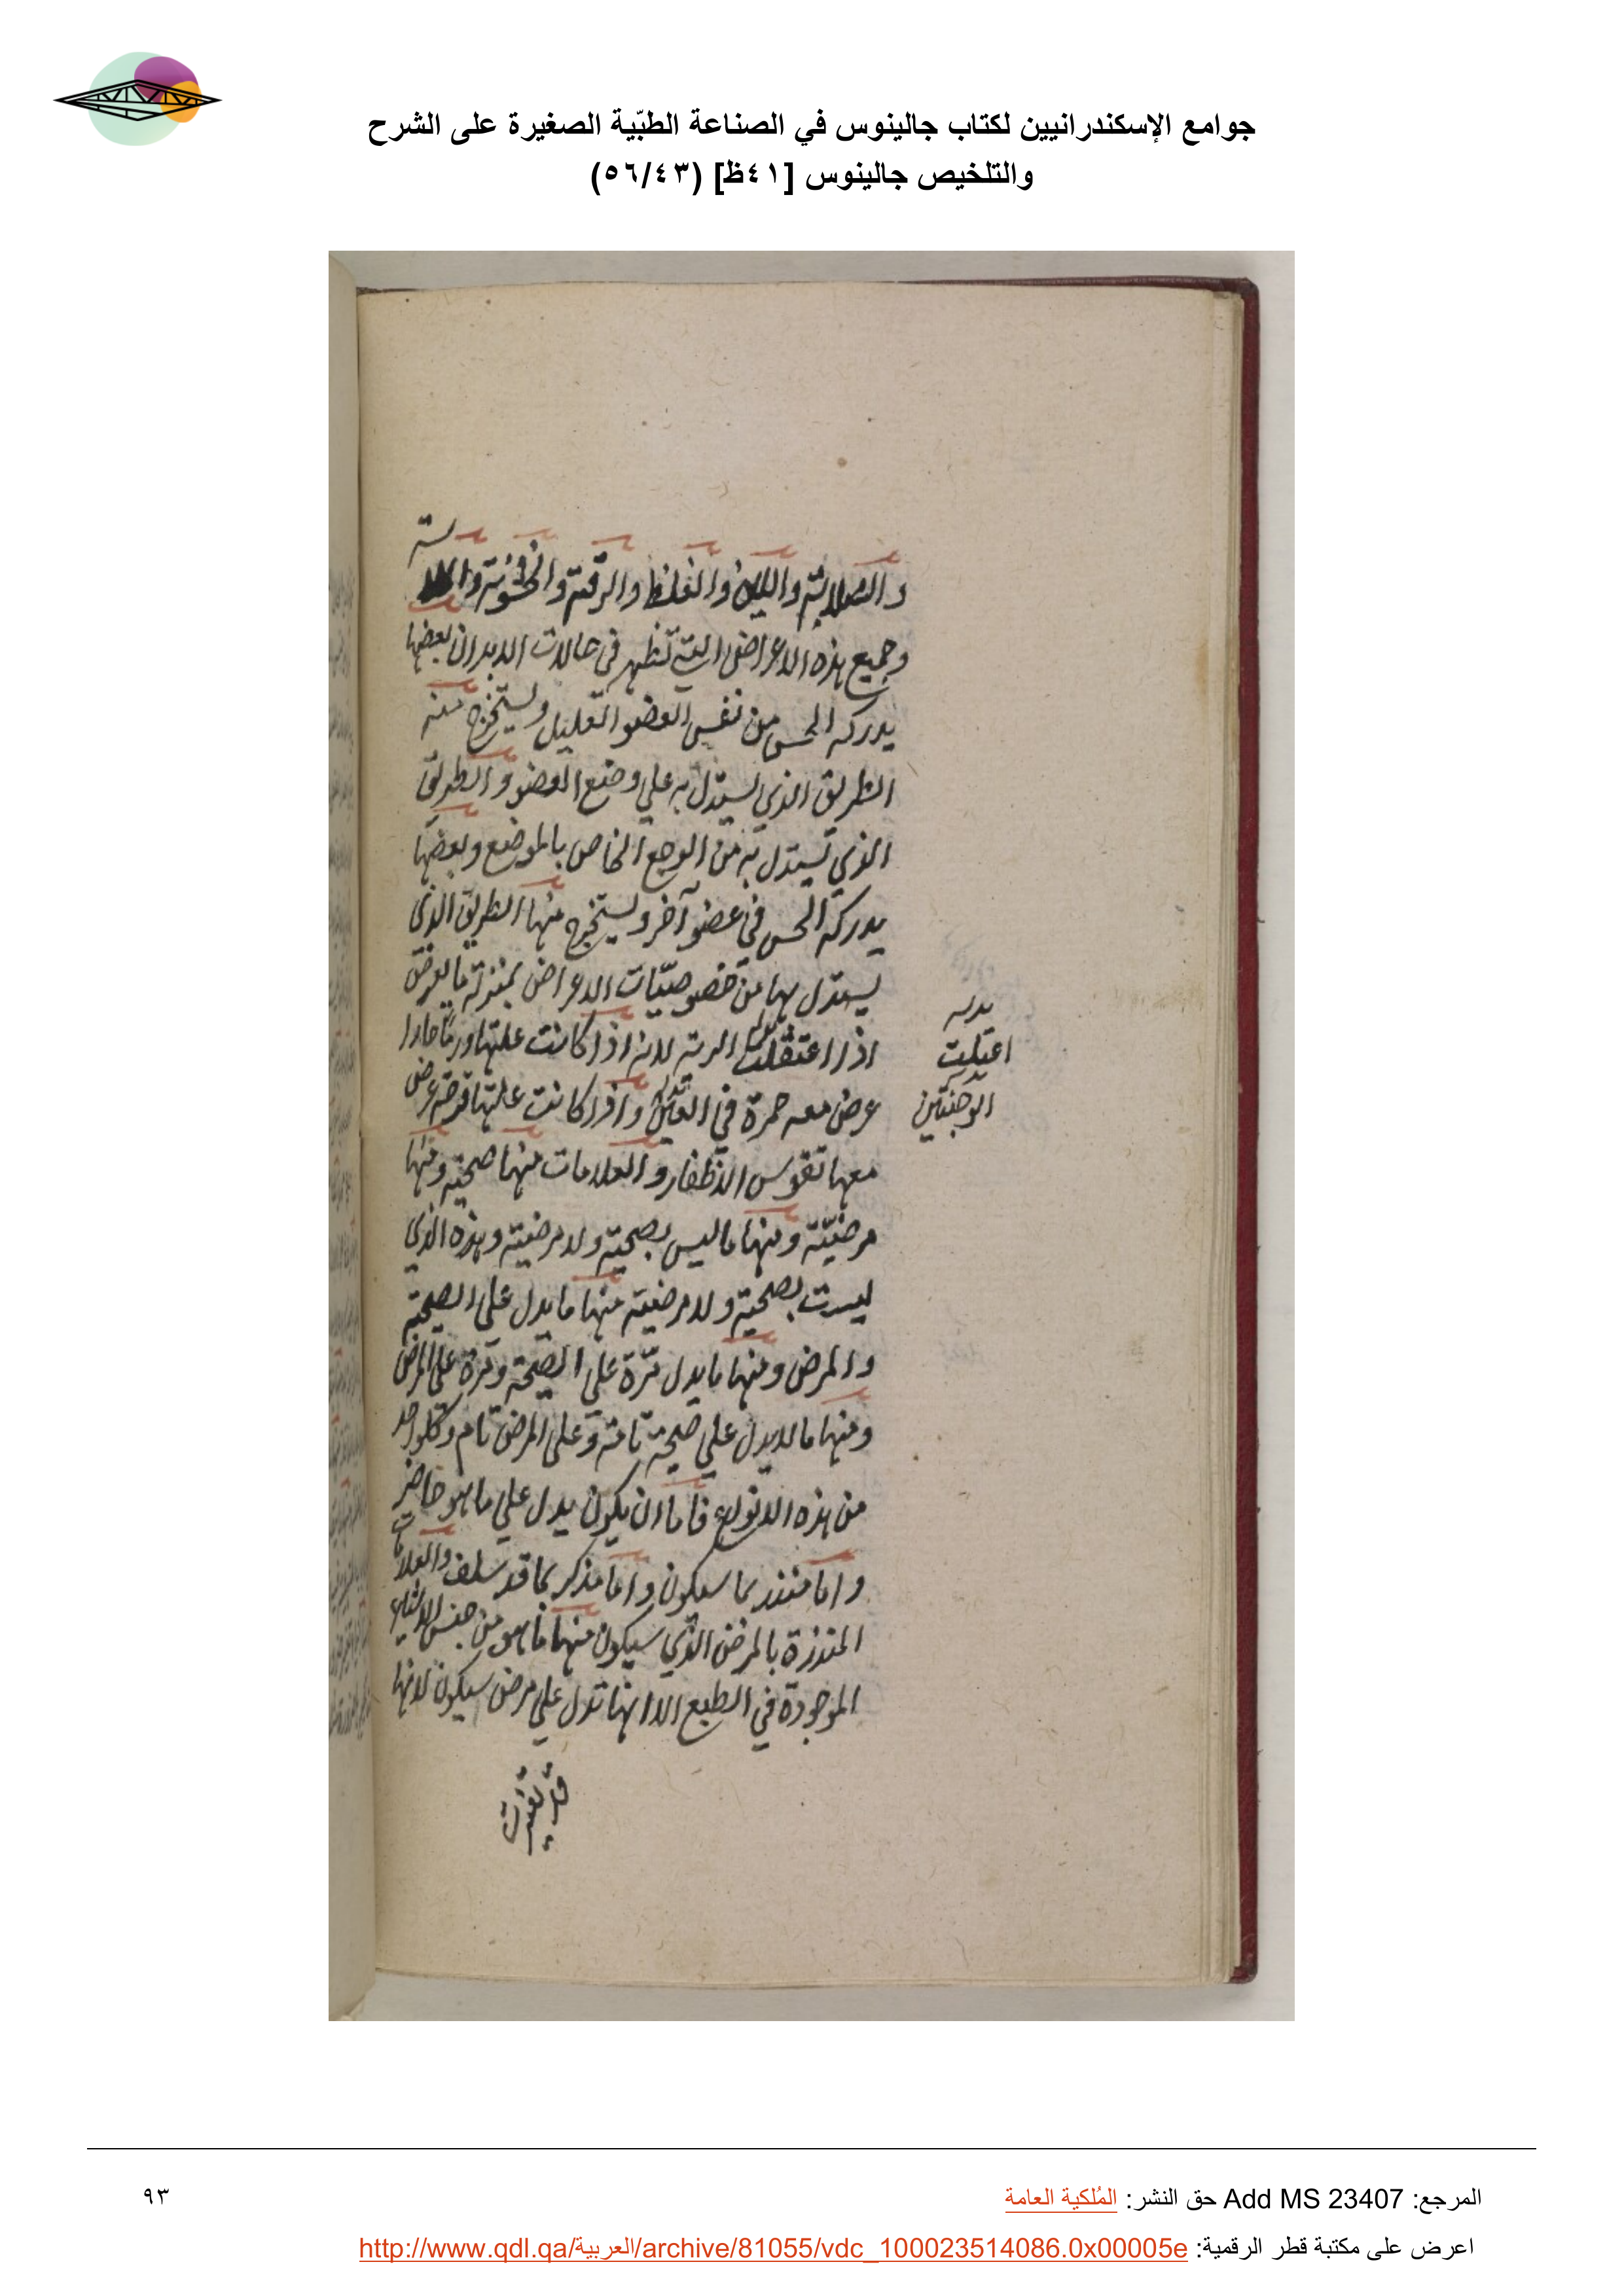 جوامع الإسكندرانيين لكتاب جالينوس في الصناعة الطبّية الصغيرة على الشرح
والتلخيص جالينوس [٤١ظ] (٥٦/٤٣)
والصلابة واللين والغلظ والرقة والخشونة و
وجميع هذه الاعراض التي تظهر في حالات الابدان بعضها
يدركه الحس من نفس العضو العليل ويستخرج منه
الطريق الذي يستدل به علي وضع العضو والطريق
الذي تستدل به من الوجع الخاص بالموضع وبعضها
يدركه الحس في عضو آخر ويستخرج منها الطريق الذي
يستدل بها من خصوصيّات الاعراض بمنزلة ما يعرض
اذا اعتقلت الرية لانه اذا كانت علتها ورمًا حارا
عرض معه حمرة في العين واذا كانت علتها قرحة عرض
معها تقوس الاظفار والعلامات منها صحية ومنها
مرضيّة ومنها ما ليس بصحية ولا مرضية وهذه الذي
ليست بصحية ولا مرضية منها ما يدل علي الصحة
والمرض ومنها ما يدل تّرة علي الصحة وترة علي المرض
ومنها ما لا يدل علي صحة تامة وعلي المرض تام وكلواحد
من هذه الانواع فاما ان يكون يدل علي ما هو حاضر
واما منذر بما سيكون واما مذكر بما قد سلف والعلامات
المنذرة بالمرض الذي سيكون منها ما هو من جنس الاشياء
الموجودة في الطبع الا انها تدل علي مرض سيكون لانها
قد تغيرت
بدله
اعتلت
الوجنتين
المرجع: Add MS 23407 حق النشر: المُلكية العامة
٩٣
اعرض على مكتبة قطر الرقمية: http://www.qdl.qa/العربية/archive/81055/vdc_100023514086.0x00005e